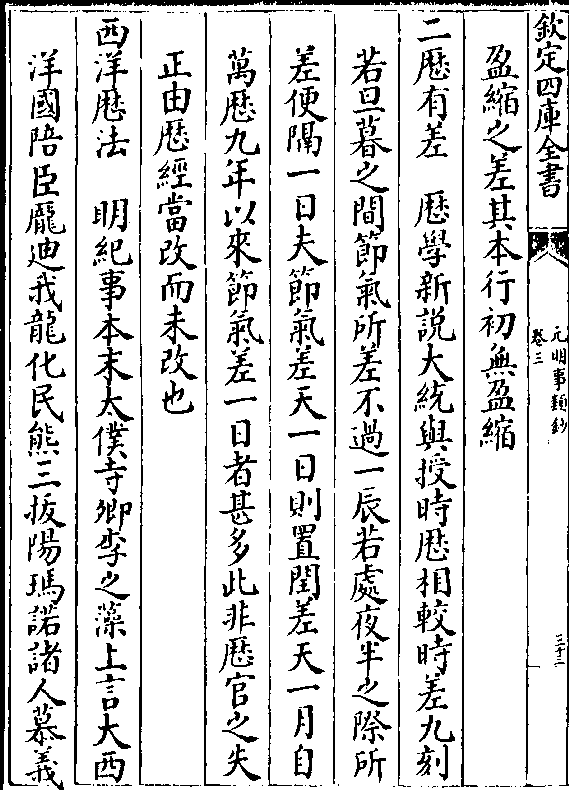 欽定四庫全書
元明事類鈔
卷三
三十二
盈縮之差其本行初無盈縮
二歴有差　歴學新説大統與授時歴相較時差九刻
若旦暮之間節氣所差不過一辰若處夜半之際所
差便隔一日夫節氣差天一日則置閏差天一月自
萬歴九年以來節氣差一日者甚多此非歴官之失
正由歴經當改而未改也
西洋歴法　明紀事本末太僕寺卿李之藻上言大西
洋國陪臣龐迪我龍化民熊三拔陽瑪諾諸人慕義